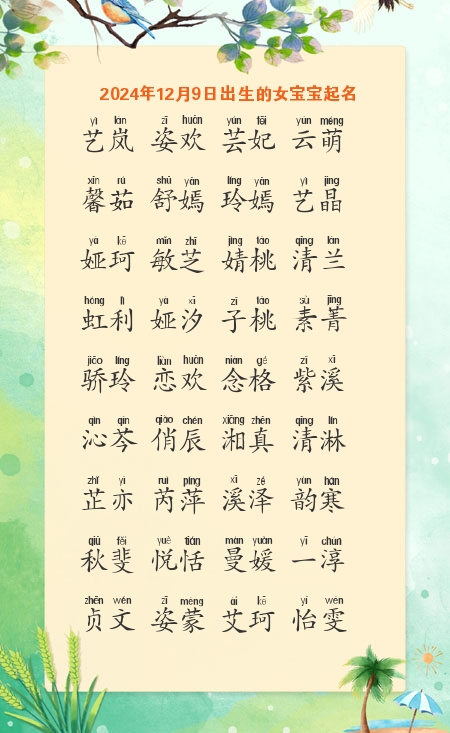 2024年12月9日出生的女宝宝起名
yì lán zī huān yún fēi yún méng
艺岚 姿欢 芸妃 云萌
xīn rú shū yān líng yān yì jīng
馨茹 舒嫣 玲嫣 艺晶
yà kē mǐn zhī jìng táo qīng lán
娅珂 敏芝 婧桃 清兰
hóng lì yà xī zǐ táo sù jīng
虹利 娅汐 子桃 素菁
jiāo líng liàn huān niàn gé zǐ xī
骄玲 恋欢 念格 紫溪
qìn qín qiào chén xiāng zhēn qīng lín
沁芩 俏辰 湘真 清淋
zhǐ yì ruì píng xī zé yùn hán
芷亦 芮萍 溪泽 韵寒
qiū fěi yuè tián màn yuàn yī chún
秋斐 悦恬 曼媛 一淳
zhēn wén zī méng ài kē yí wén
贞文 姿蒙 艾珂 怡雯